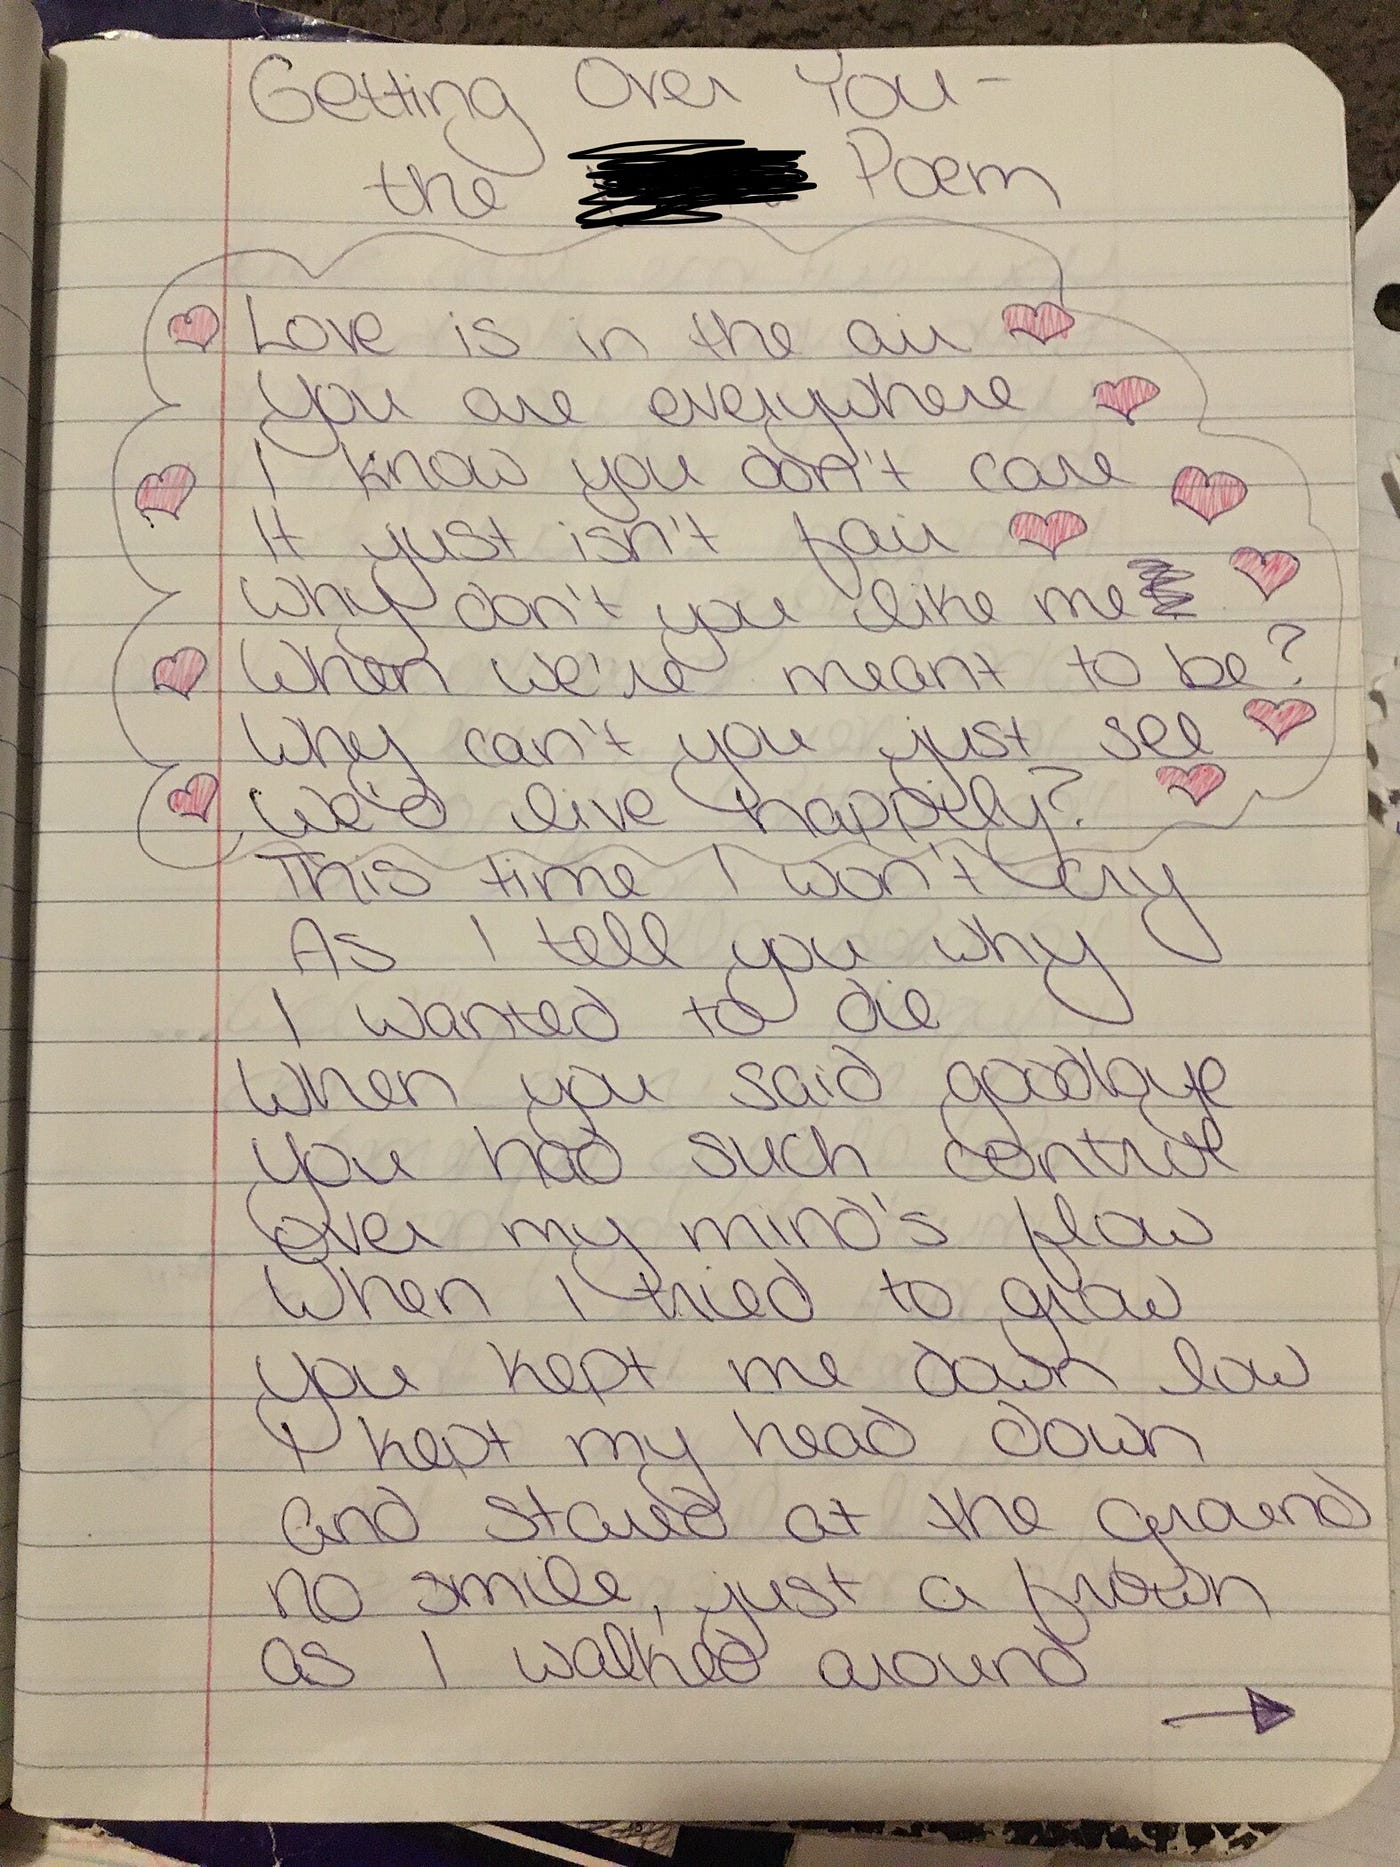 Getting Over You -
the Poem
Love is in the air
You are everywhere
I know you don't care
It just isn't fair
Why don't you like me
When we're meant to be?
Why can't you just see
We'd live happily?
This time I won't cry
As I tell you why
I wanted to die
When you said goodbye
You had such control
over my mind's flow
When I tried to grow
you kept me down low
I kept my head down
and stared at the ground
no smile, just a frown
as I walked around